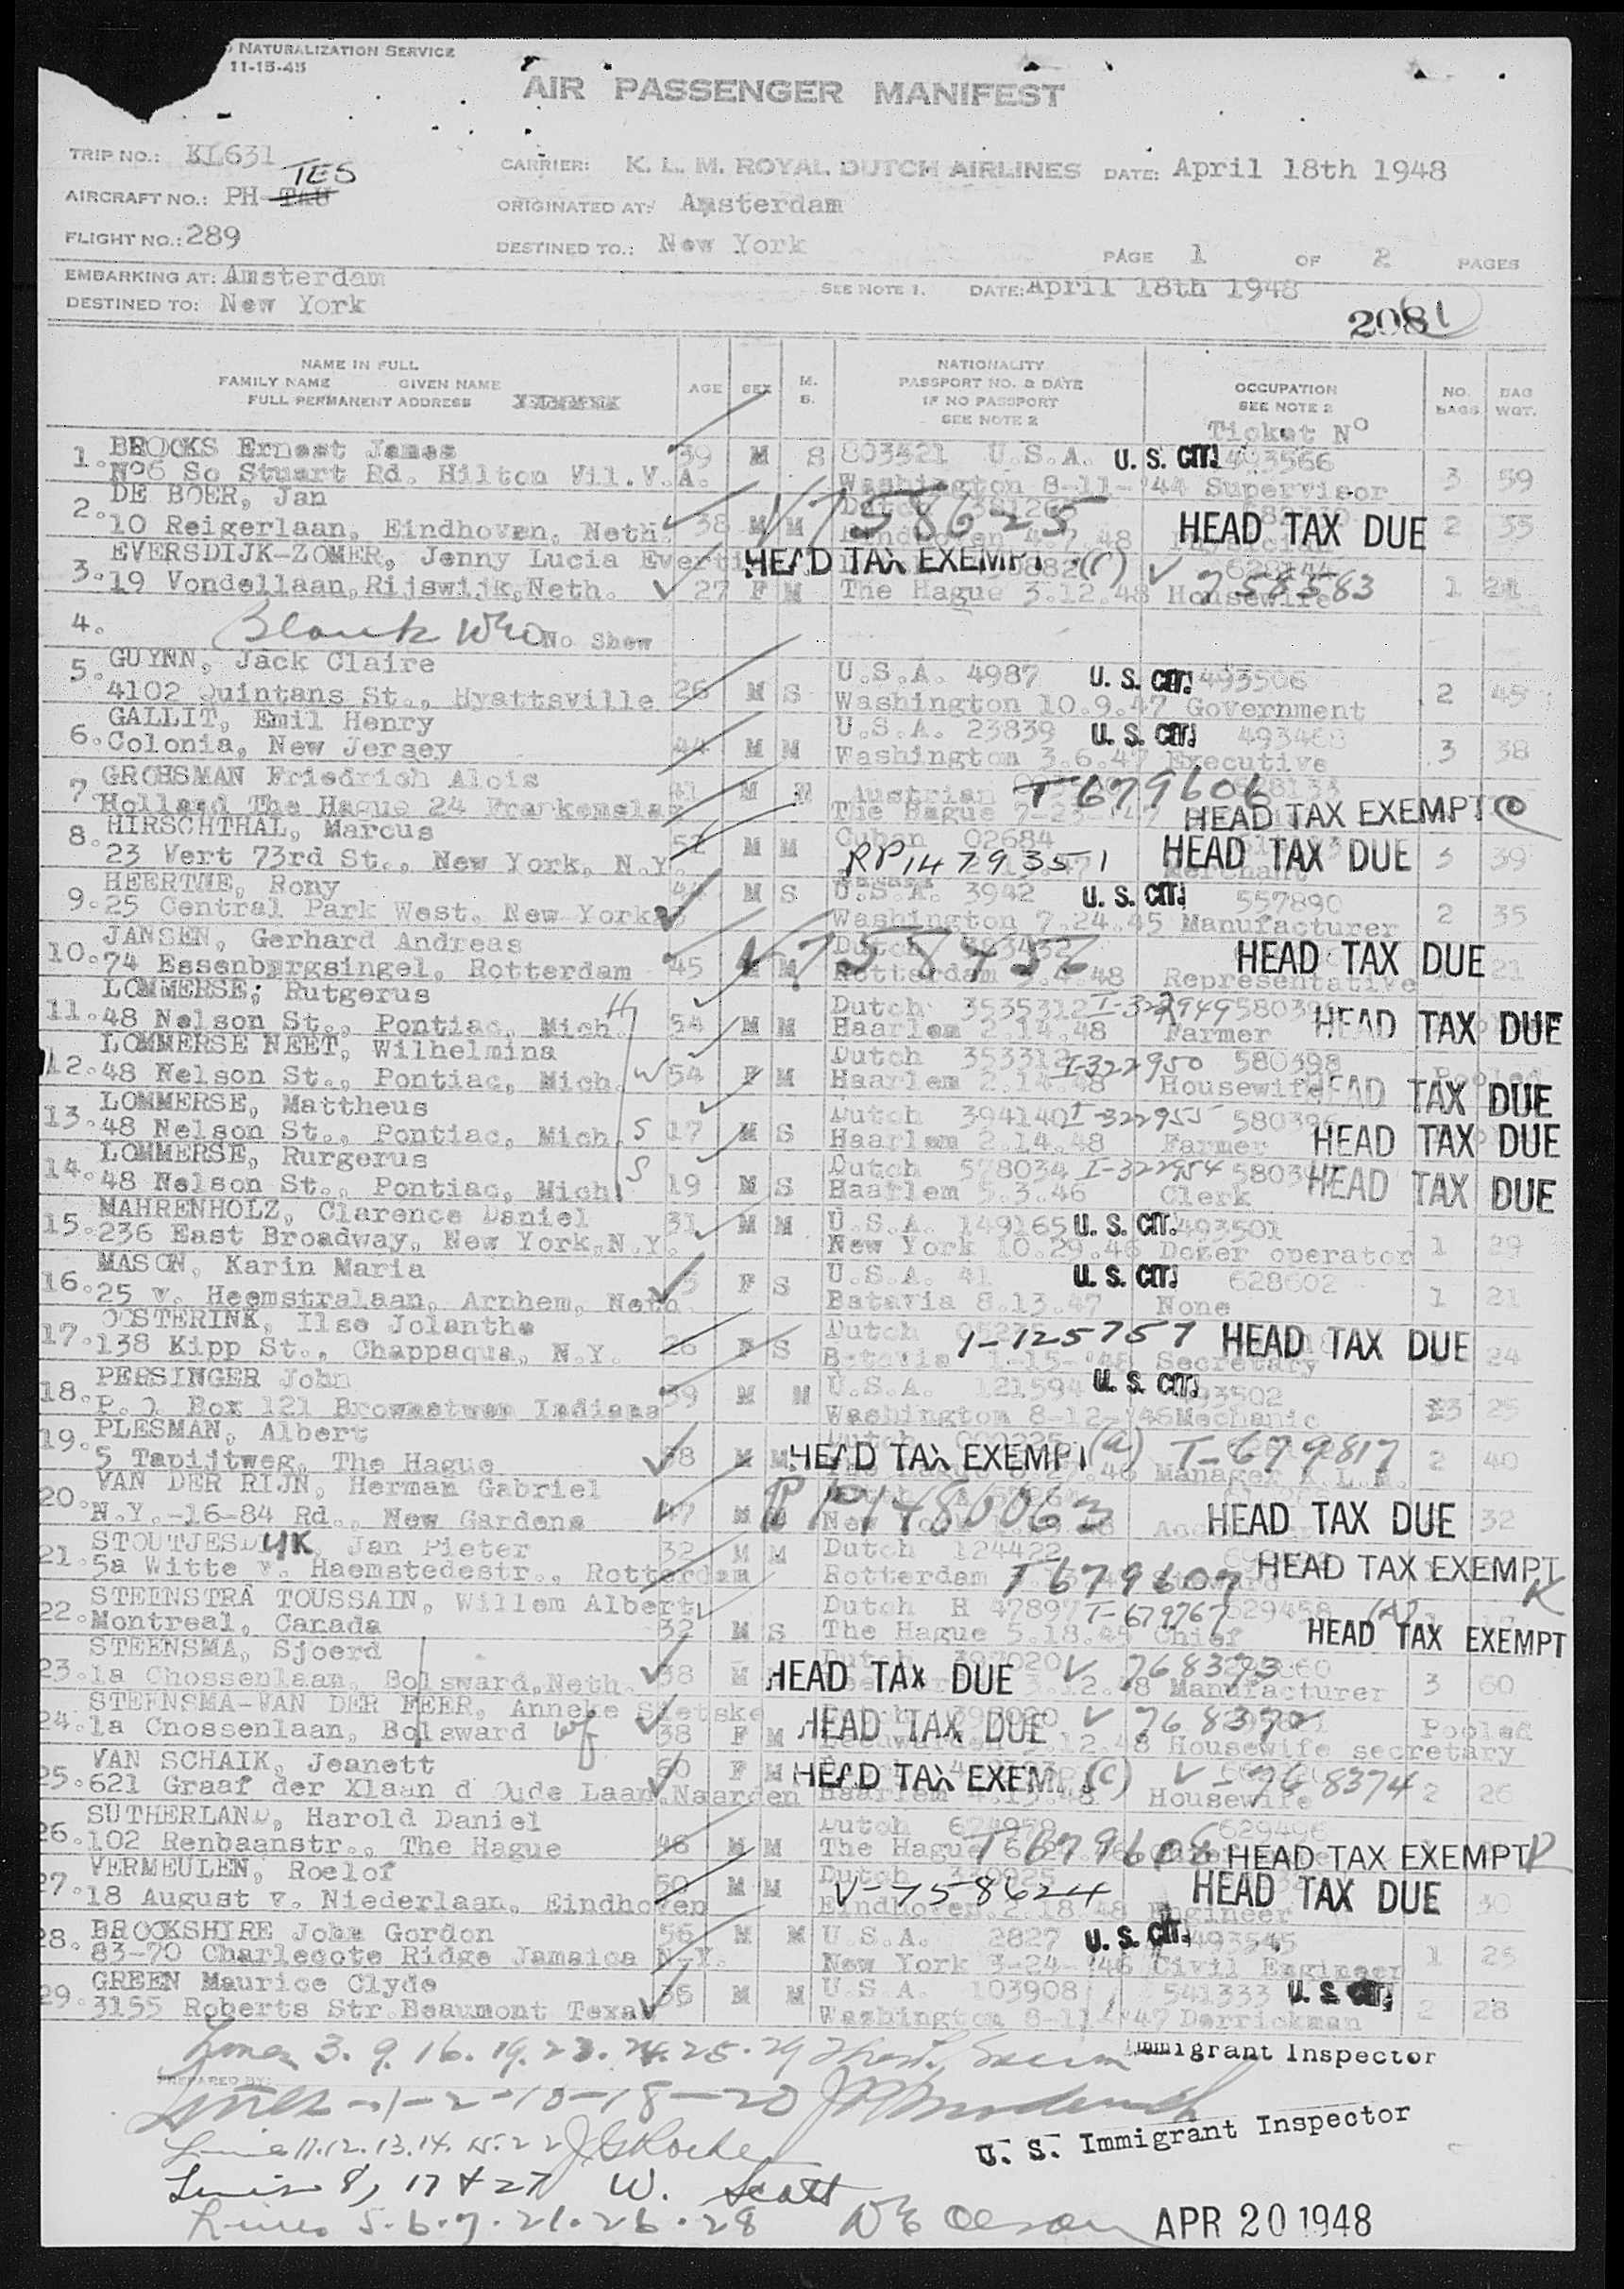 NATURALIZATION SERVICE
11-15-45
AIR PASSENGER MANIFEST
TRIP NO.: KL631
CARRIER: K. L. M. ROYAL DUTCH AIRLINES DATE: April 18th 1948
TES
AIRCRAFT NO.: PH-TAU
ORIGINATED AT: Amsterdam
FLIGHT NO.: 289
DESTINED TO.: New York
PAGE 1 OF 2 PAGES
EMBARKING AT: Amsterdam
SEE NOTE 1. DATE: April 18th 1948
DESTINED TO: New York
2081
NAME IN FULL
FAMILY NAME GIVEN NAME
FULL PERMANENT ADDRESS
AGE SEX M. S.
NATIONALITY
PASSPORT NO. & DATE
IF NO PASSPORT
SEE NOTE 2
OCCUPATION
SEE NOTE 2
Ticket No
NO. BAGS
BAG WGT.
1. BROOKS Ernest James 39 M S 803521 U.S.A. U. S. CIT. 493566
No6 So Stuart Rd. Hilton Vil.V.A. Washington 8-11-'44 Supervisor 3 59
2. DE BOER, Jan Dutch
10 Reigerlaan, Eindhoven, Neth. 38 M M V758625 HEAD TAX DUE 2 53
3. EVERSDIJK-ZOMER, Jenny Lucia HEAD TAX EXEMPT (C) 628144
19 Vondellaan, Rijswijk, Neth. 27 F M The Hague 3.12.48 Housewife 758583 1 21
4. Blank No Show
5. GUYNN, Jack Claire U.S.A. 4987 U. S. CIT. 493506
4102 Quintans St., Hyattsville 26 M S Washington 10.9.47 Government 2 45
6. GALLIT, Emil Henry U.S.A. 23839 U. S. CIT. 493468
Colonia, New Jersey 44 M M Washington 3.6.47 Executive 3 38
7. GROHSMAN Friedrich Alois 41 M M Austrian T679606
Holland The Hague 24 The Hague 7-23-'47 HEAD TAX EXEMPT
8. HIRSCHTHAL, Marcus 52 M M Cuban 02684
23 Vert 73rd St., New York, N.Y. RP1479351 HEAD TAX DUE 3 39
9. HEERTHE, Rony 44 M S U.S.A. 3942 U. S. CIT. 557890
25 Central Park West, New York Washington 7.24.45 Manufacturer 2 35
10. JANSEN, Gerhard Andreas Dutch
74 Essenburgsingel, Rotterdam 45 M M Rotterdam 48 Representative HEAD TAX DUE 21
11. LOMMERSE, Rutgerus H Dutch 3535312 I-322949
48 Nelson St., Pontiac, Mich. 54 M M Haarlem 2.14.48 Farmer HEAD TAX DUE
12. LOMMERSE NEET, Wilhelmina Dutch 353312 I-322950 580398
48 Nelson St., Pontiac, Mich. W 54 F M Haarlem 2.14.48 Housewife HEAD TAX DUE
13. LOMMERSE, Mattheus Dutch 394140 I-322955 580396
48 Nelson St., Pontiac, Mich. S 17 M S Haarlem 2.14.48 Farmer HEAD TAX DUE
14. LOMMERSE, Rurgerus S Dutch 578034 I-322954
48 Nelson St., Pontiac, Mich 19 M S Haarlem 5.3.46 Clerk HEAD TAX DUE
15. MAHRENHOLZ, Clarence Daniel 31 M M U.S.A. 149165 U. S. CIT. 493501
236 East Broadway, New York, N.Y. New York 10.29.46 Dozer operator 1 29
16. MASON, Karin Maria F S U.S.A. 41 U. S. CIT. 628602
25 v. Heemstralaan, Arnhem, Neth. Batavia 8.13.47 None 1 21
17. OOSTERINK, Ilse Jolanthe Dutch
138 Kipp St., Chappaqua, N.Y. 26 F S 1-125757 HEAD TAX DUE
Batavia 1-15-'48 Secretary 24
18. PERSINGER John 39 M M U.S.A. 121594 U. S. CIT. 493502
P.O Box 121 Brownstown Indiana Washington 8-12-'46 Mechanic 3 25
19. PLESMAN, Albert
5 Tapijtweg, The Hague 38 M M HEAD TAX EXEMPT (a) T-679817
Manager K.L.M. 2 40
20. VAN DER RIJN, Herman Gabriel
N.Y.-16-84 Rd., New Gardens 47 M RP1486063 HEAD TAX DUE 32
21. STOUTJESDIJK, Jan Pieter 32 M M Dutch 124422
5a Witte v. Haemstedestr., Rotterdam Rotterdam T679607 HEAD TAX EXEMPT K
22. STEENSTRA TOUSSAIN, Willem Albert Dutch H 47897 T-679767 629458
Montreal, Canada 32 M S The Hague 5.18.45 Chief HEAD TAX EXEMPT
23. STEENSMA, Sjoerd
1a Chossenlaan, Bolsward, Neth. 38 M HEAD TAX DUE V 768373
12.48 Manufacturer 3 60
24. STEENSMA-VAN DER FEER, Anneke Sjetske
1a Cnossenlaan, Bolsward wf 38 F M HEAD TAX DUE V 768372
12.48 Housewife secretary Pooled
25. VAN SCHAIK, Jeanett 60 F M HEAD TAX EXEMPT (C) V-768374
621 Graaf der Xlaan d Oude Laan, Naarden Haarlem 4.13.48 Housewife 2 26
26. SUTHERLAND, Harold Daniel Dutch 624958 629496
102 Renbaanstr., The Hague 46 M M The Hague T679608 HEAD TAX EXEMPT
27. VERMEULEN, Roelof 50 M M Dutch
18 August v. Niederlaan, Eindhoven V-758624 HEAD TAX DUE
Eindhoven 2.18.48 Engineer 30
28. BROOKSHIRE John Gordon 56 M M U.S.A. 2827 U. S. CIT. 493545
83-70 Charlecote Ridge Jamaica N.Y. New York 3-24-'46 Civil Engineer 1 25
29. GREEN Maurice Clyde 35 M M U.S.A. 103908 541333 U. S. CIT.
3155 Roberts Str.Beaumont Texas Washington 8-11-'47 Derrickman 2 28
Lines 3. 9. 16. 19. 23. 24. 25. 29
Immigrant Inspector
PREPARED BY:
Lines -1-2-10-18-20
U. S. Immigrant Inspector
Lines 11. 12. 13. 14. 15. 22 J G Roche
Lines 8, 17 & 27 W. Scott
Lines 5. 6. 7. 21. 26. 28
APR 20 1948